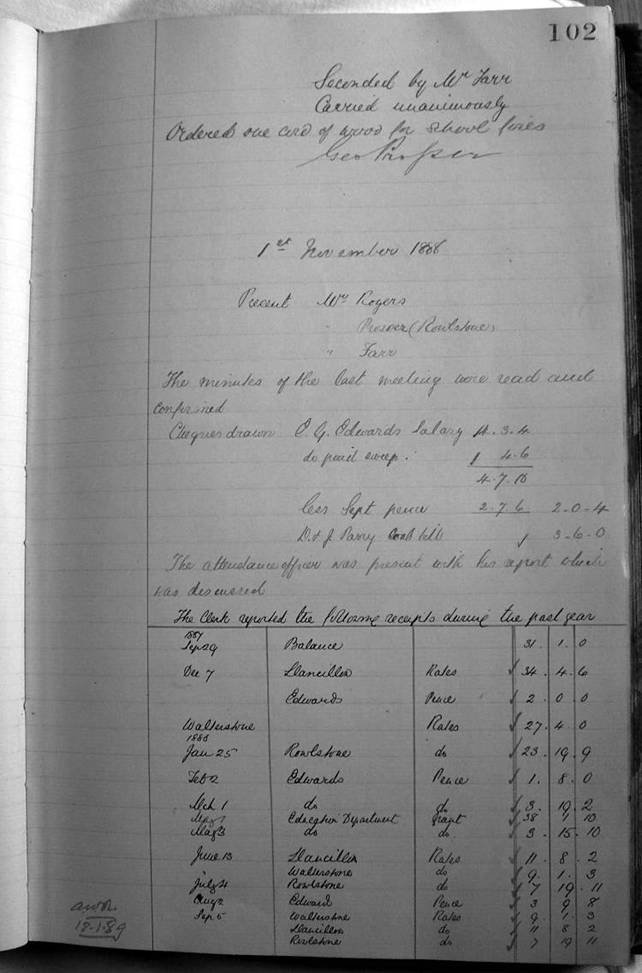 102
Seconded by Mr Farr
Carried unanimously
Ordered one cord of wood for School fires
Geo Prosser
1st November 1888
Present Mrs Rogers
" Prosser (Rowlstone)
" Farr
The minutes of the last meeting were read and
confirmed
Cheques drawn E. G. Edwards Salary 4.3.4
do paid sweep. 4.6
4.7.10
less Sept pence 2.7.6 2-0-4
D. & J. Parry Coal bill 3-6-0
The attendance officer was present with his report which
was discussed
The Clerk reported the following receipts during the past year
1887
Sep 29 Balance 31. 1. 0
Dec 7 Llancillo Rates 34. 4. 6
Edwards Pence 2. 0. 0
Walterstone Rates 27. 4. 0
1888
Jan 25 Rowlstone do 23. 19. 9
Feb 2 Edwards Pence 1. 8. 0
Mch 1 do do 3. 19. 2
May 1 Education Department Grant 38 1 10
May 3 do do. 3. 15. 10
June 13 Llancillo Rates 11. 8. 2
Walterstone do 9. 1. 3
July 4 Rowlstone do 7 19. 11
Aug 2 Edward Pence 3 9 8
Sep 5 Walterstone Rates 9. 1. 3
Llancillo do 11 8 2
Rowlstone do 7 19 11
18-1-89